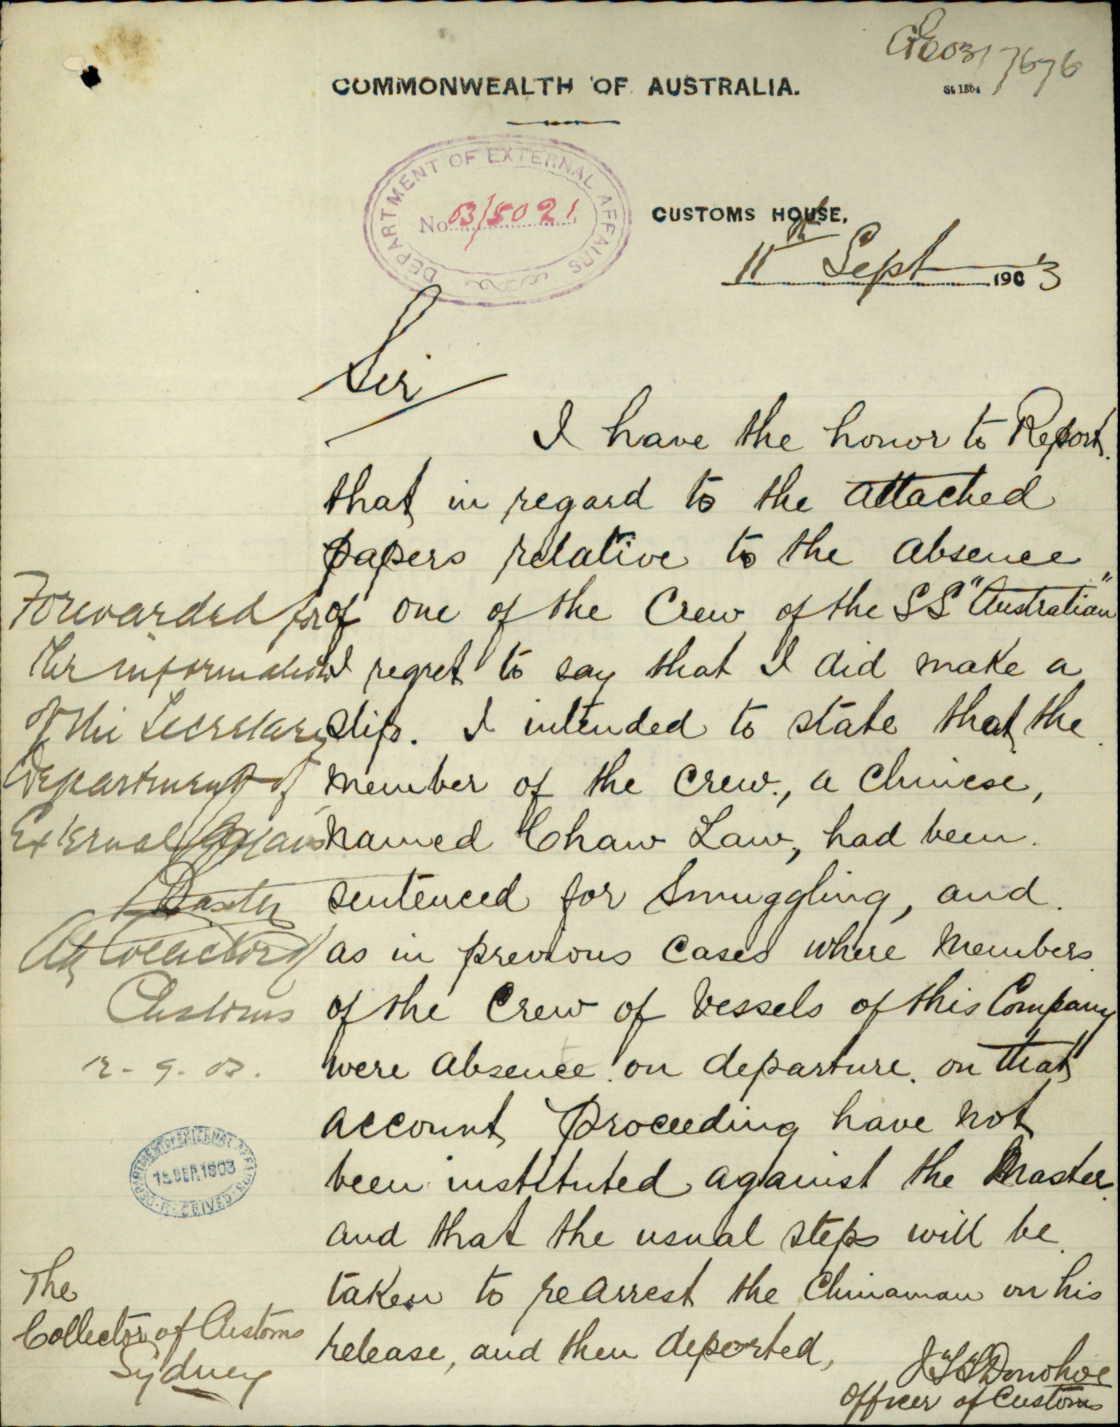 03/7676
COMMONWEALTH OF AUSTRALIA.
DEPARTMENT OF EXTERNAL AFFAIRS
No 03/5021
CUSTOMS HOUSE,
11th Sept 1903
Sir
I have the honor to Report
that in regard to the attached
papers relative to the absence
of one of the Crew of the SS "Australian"
I regret to say that I did make a
slip. I intended to state that the
member of the crew, a Chinese,
named Chaw Law, had been
sentenced for Smuggling, and
as in previous cases where Members
of the Crew of Vessels of this Company
were absence on departure on that
account, proceeding have not
been instituted against the Master
and that the usual steps will be
taken to rearrest the Chinaman on his
release, and then deported,
Donohoe
Officer of Customs
Forwarded for
the information
of the Secretary
Department of
External Affairs
Baxter
Actg Collector of
Customs
12-9-03.
15 SEP. 1903
The
Collector of Customs
Sydney